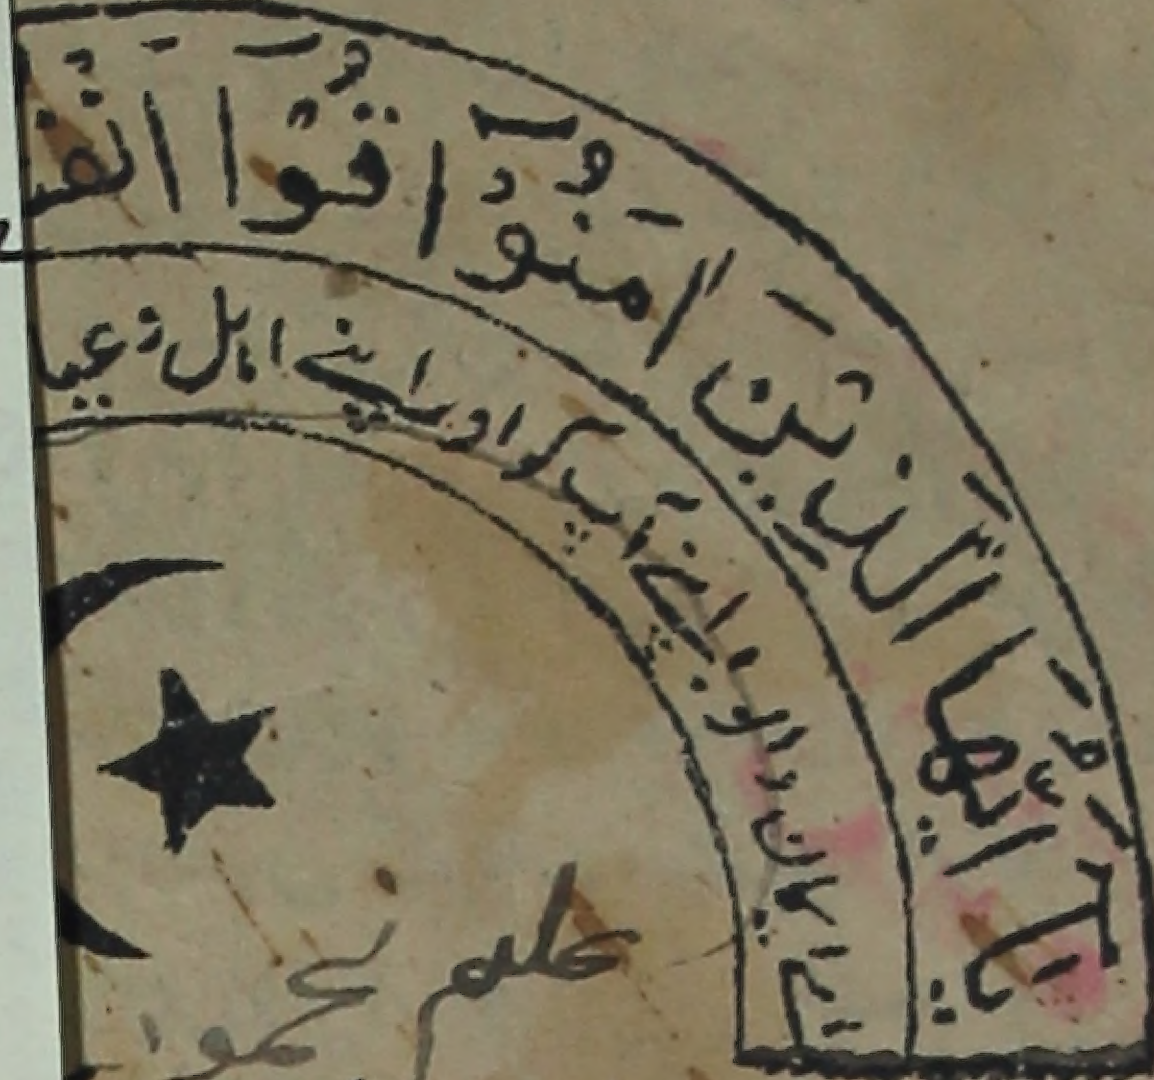 يٰۤاَيُّهَا الَّذِيْنَ اٰمَنُوْا قُوْۤا اَنْفُ
اے ایمان والو اپنے آپ کو اور اپنے اہل و عیا